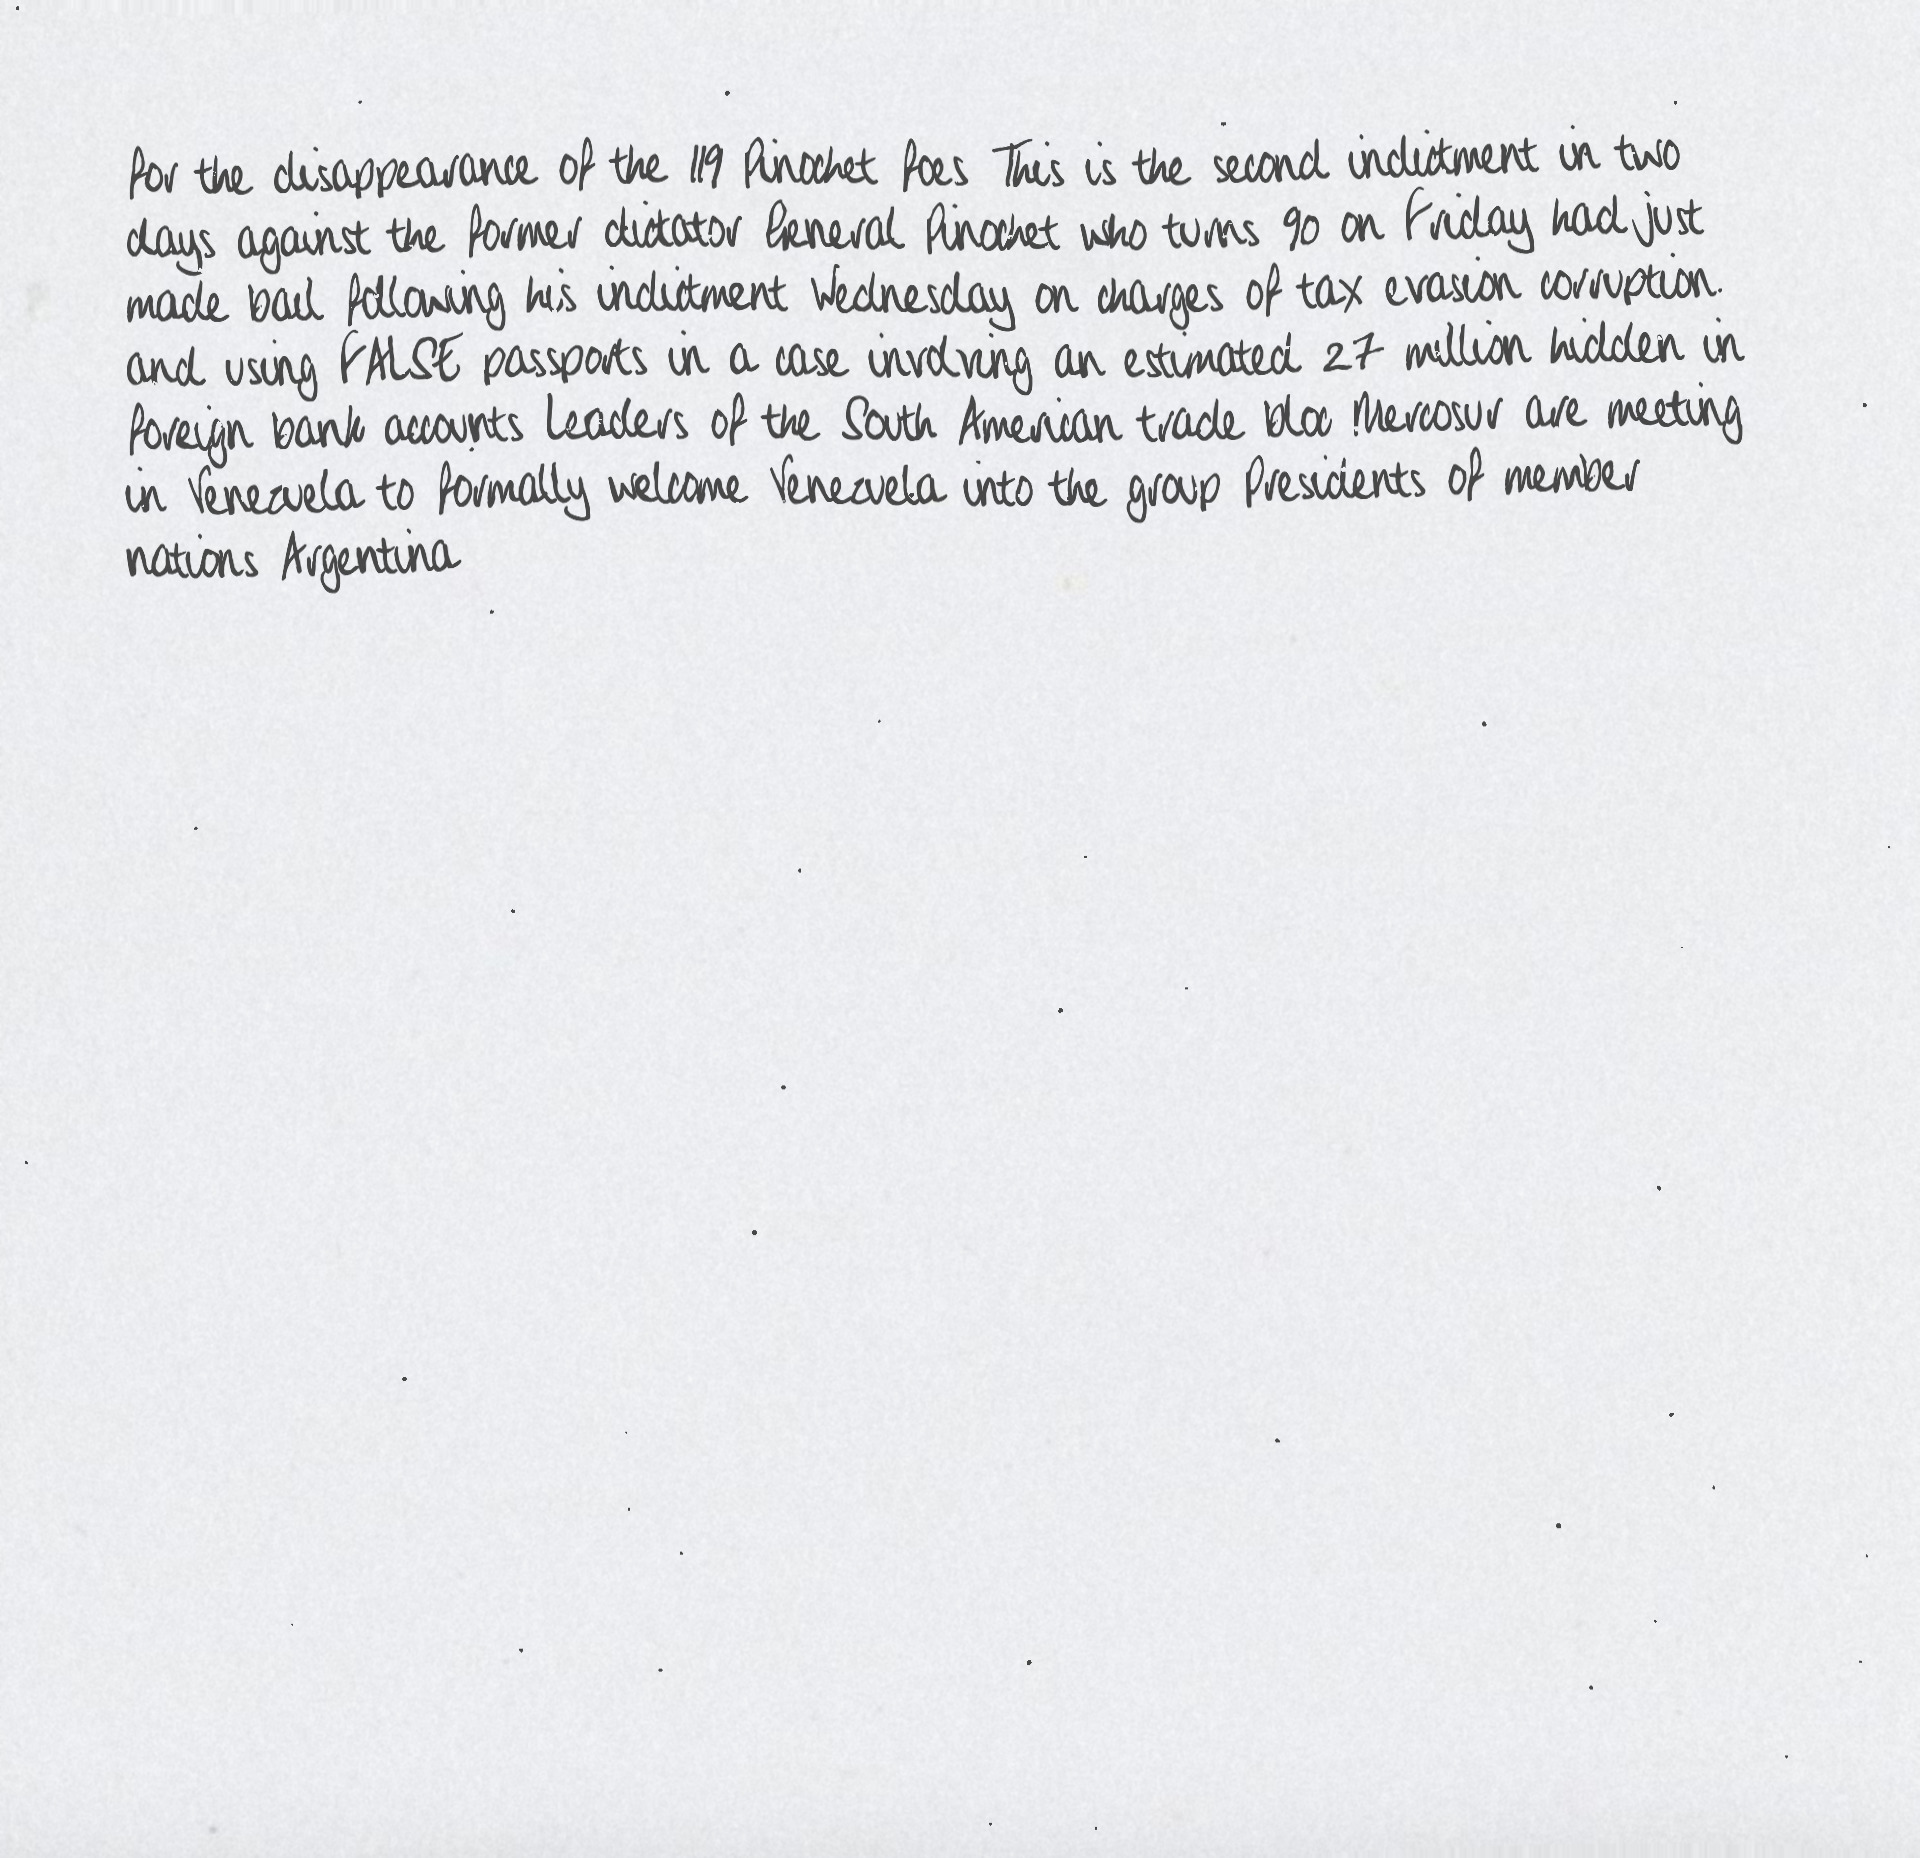 for the disappearance of the 119 Pinochet foes This is the second indictment in two
days against the former dictator General Pinochet who turns 90 on Friday had just
made bail following his indictment Wednesday on charges of tax evasion corruption
and using FALSE passports in a case involving an estimated 27 million hidden in
foreign bank accounts Leaders of the South American trade bloc Mercosur are meeting
in Venezuela to formally welcome Venezuela into the group Presidents of member
nations Argentina